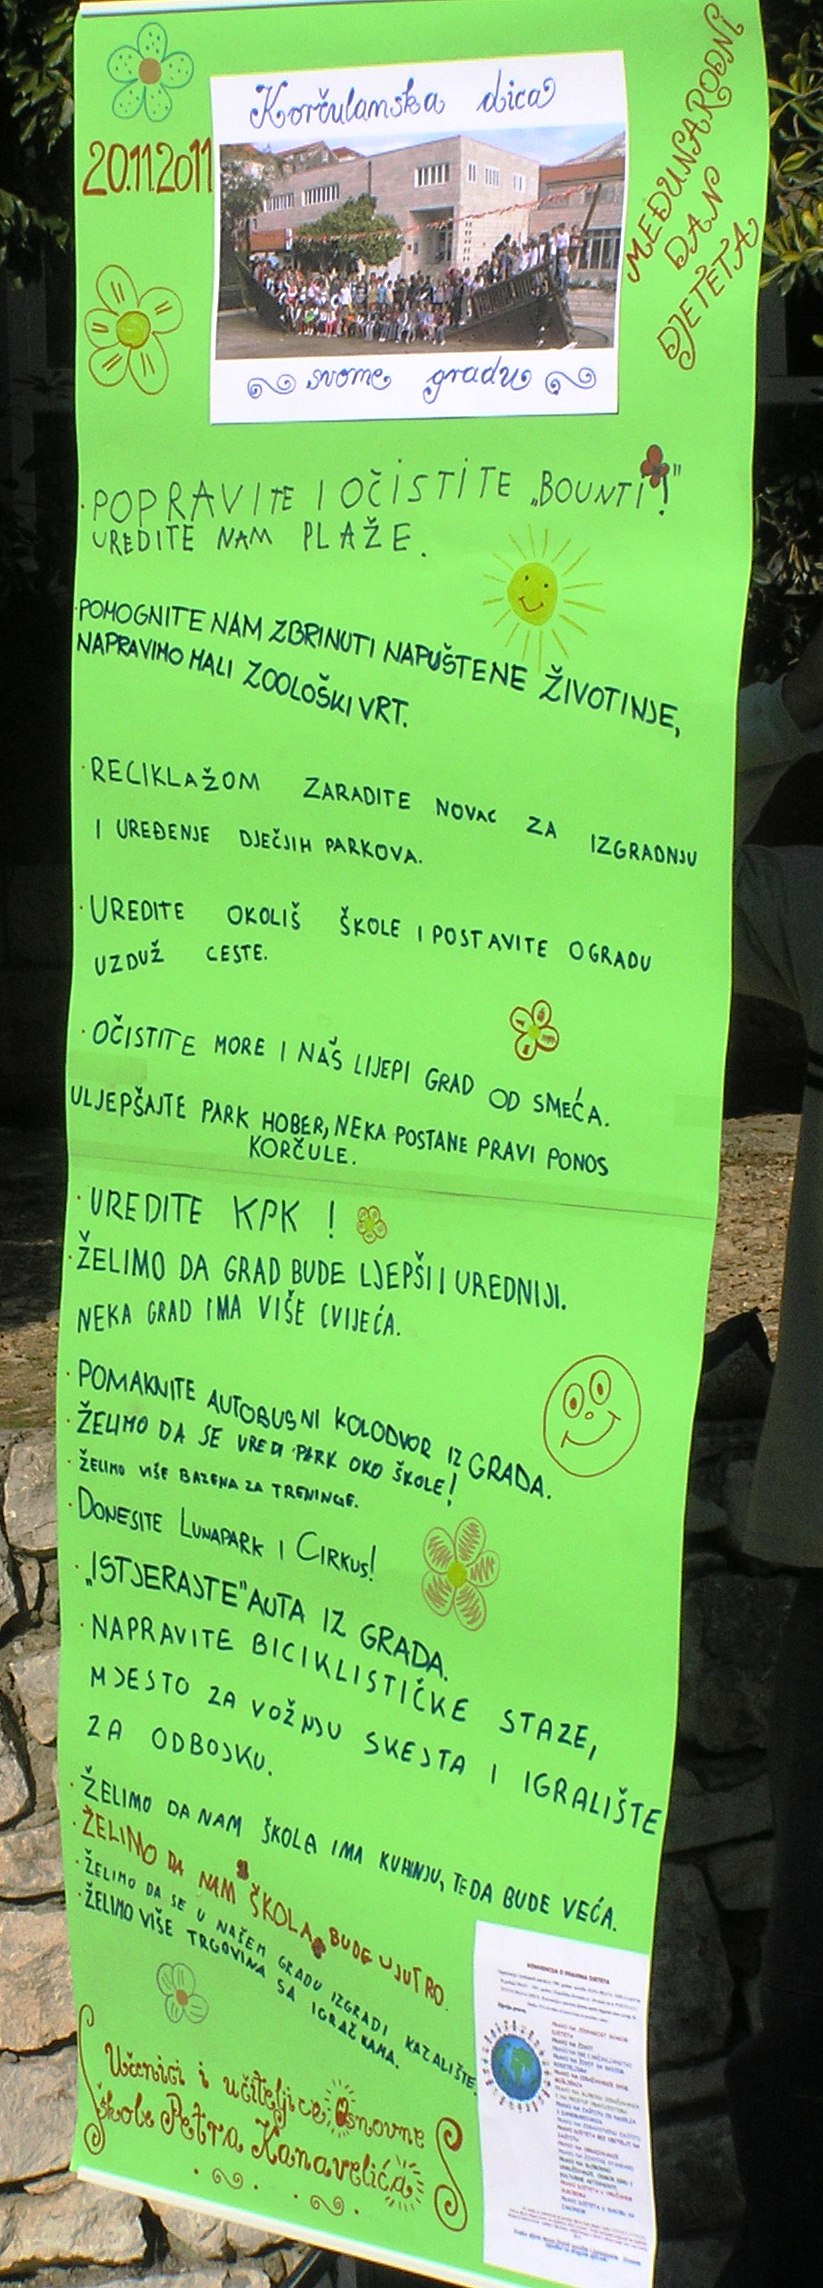 Korčulanska dica
20.11.2011
MEĐUNARODNI
DAN
DJETETA
svome gradu
·POPRAVITE I OČISTITE „BOUNTI"!
UREDITE NAM PLAŽE.
·POMOGNITE NAM ZBRINUTI NAPUŠTENE ŽIVOTINJE,
NAPRAVIMO MALI ZOOLOŠKI VRT.
·RECIKLAŽOM ZARADITE NOVAC ZA IZGRADNJU
I UREĐENJE DJEČJIH PARKOVA.
·UREDITE OKOLIŠ ŠKOLE I POSTAVITE OGRADU
UZDUŽ CESTE.
·OČISTITE MORE I NAŠ LIJEPI GRAD OD SMEĆA.
ULJEPŠAJTE PARK HOBER, NEKA POSTANE PRAVI PONOS
KORČULE.
·UREDITE KPK!
·ŽELIMO DA GRAD BUDE LJEPŠI I UREDNIJI.
NEKA GRAD IMA VIŠE CVIJEĆA.
·POMAKNITE AUTOBUSNI KOLODVOR IZ GRADA.
·ŽELIMO DA SE UREDI PARK OKO ŠKOLE!
·ŽELIMO VIŠE BAZENA ZA TRENINGE.
·DONESITE LUNAPARK I CIRKUS!
·„ISTJERAJTE" AUTA IZ GRADA.
·NAPRAVITE BICIKLISTIČKE STAZE,
MJESTO ZA VOŽNJU SKEJTA I IGRALIŠTE
ZA ODBOJKU.
·ŽELIMO DA NAM ŠKOLA IMA KUHINJU, TE DA BUDE VEĆA.
·ŽELIMO DA NAM ŠKOLA BUDE UJUTRO.
·ŽELIMO DA SE U NAŠEM GRADU IZGRADI KAZALIŠTE.
·ŽELIMO VIŠE TRGOVINA SA IGRAČKAMA.
Učenici i učiteljice Osnovne
škole Petra Kanavelića
KONVENCIJA O PRAVIMA DJETETA